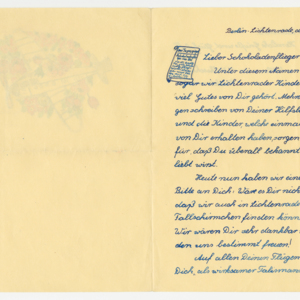 Berlin-Lichtenrade, d
Lieber Schokoladenflieger
Unter diesem Namen
sogar wir Lichtenrader Kinder
viel Gutes von Dir gehört. Mehr
gen schreiben von Deiner Hilfsb
und die Kinder, welche einma
von Dir erhalten haben, sorgen
für, daß Du überall bekannt
liebt wirst.
Heute nun haben wir eine
Bitte an Dich: Wäre es Dir nich
daß wir auch in Lichtenrade
Fallschirmchen finden könne
Wir wären Dir sehr dankbar
den uns bestimmt freuen!
Auf allen Deinen Flügen
Dich, als wirksamer Talisman